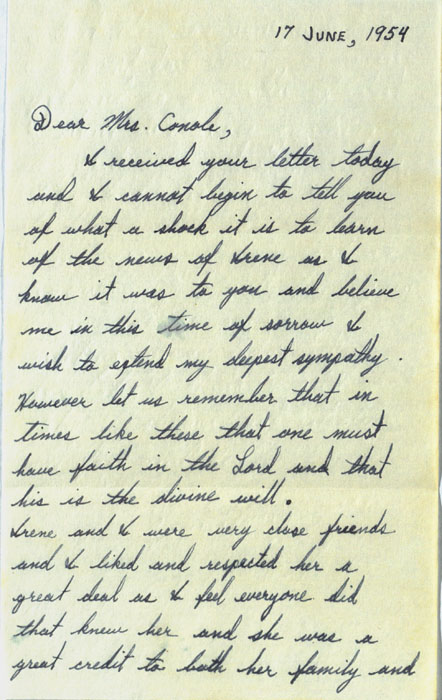 17 JUNE, 1954
Dear Mrs. Conole,
I received your letter today
and I cannot begin to tell you
of what a shock it is to learn
of the news of Irene as I
know it was to you and believe
me in this time of sorrow I
wish to extend my deepest sympathy.
However let us remember that in
times like these that one must
have faith in the Lord and that
his is the divine will.
Irene and I were very close friends
and I liked and respected her a
great deal as I feel everyone did
that knew her and she was a
great credit to both her family and